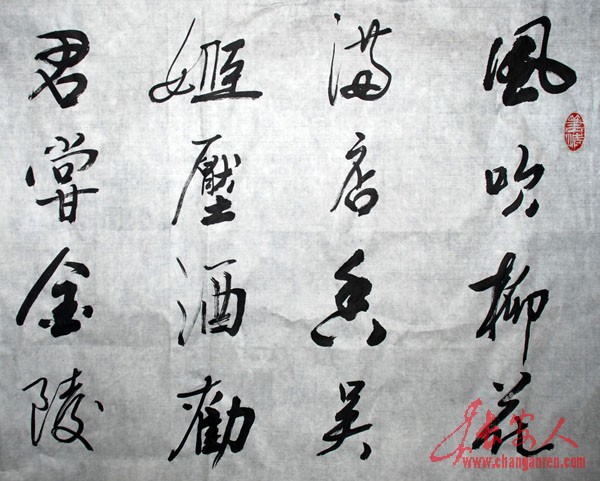 風吹柳花
滿店香吴
姬壓酒勸
君甞金陵
长安人
www.changanren.com